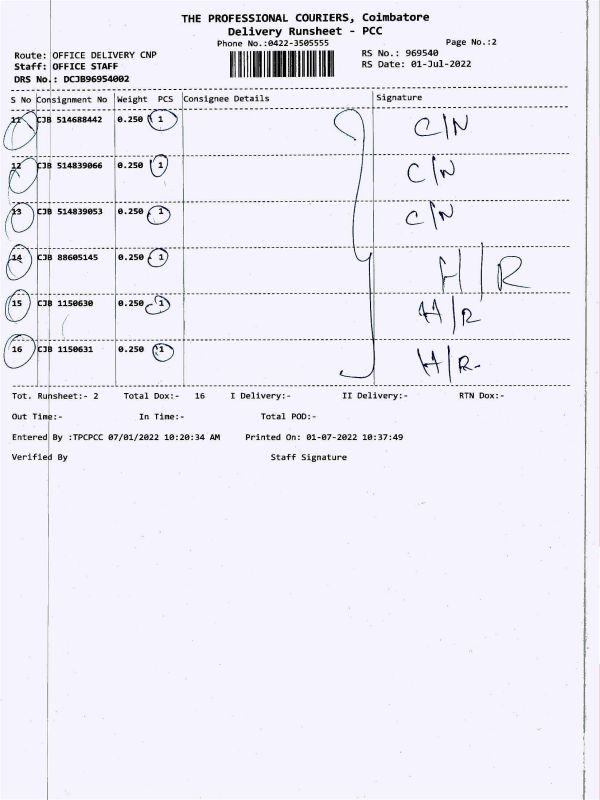 THE PROFESSIONAL COURIERS, Coimbatore
Delivery Runsheet - PCC
Phone No.:0422-3505555 Page No.:2
Route: OFFICE DELIVERY CNP RS No.: 969540
Staff: OFFICE STAFF RS Date: 01-Jul-2022
DRS No.: DCJB96954002
S No Consignment No Weight PCS Consignee Details Signature
11 CJB 514688442 0.250 1 C/N
12 CJB 514839066 0.250 1 C/N
13 CJB 514839053 0.250 1 C/N
14 CJB 88605145 0.250 1 H/R
15 CJB 1150630 0.250 1 H/R
16 CJB 1150631 0.250 1 H/R-
Tot. Runsheet:- 2 Total Dox:- 16 I Delivery:- II Delivery:- RTN Dox:-
Out Time:- In Time:- Total POD:-
Entered By :TPCPCC 07/01/2022 10:20:34 AM Printed On: 01-07-2022 10:37:49
Verified By Staff Signature